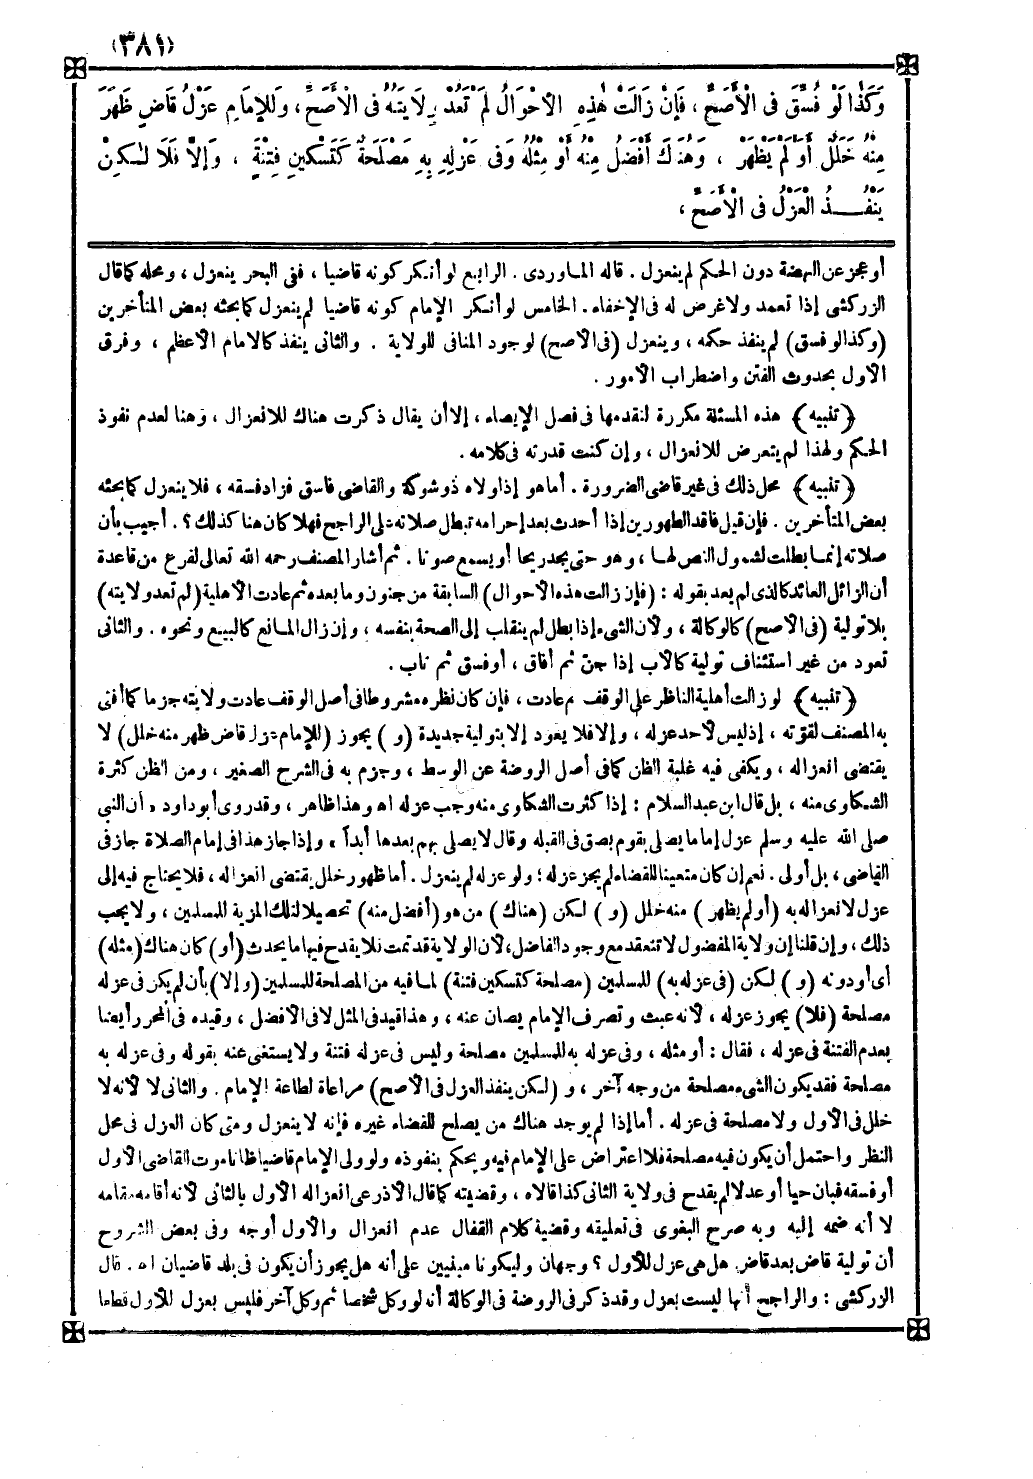 (٣٨١)
وَكَذَا لَوْ فُسِّقَ فِى الْأَصَحِّ ، فَإِنْ زَالَتْ هٰذِهِ الْأَحْوَالُ لَمْ تَعُدْ وِلَايَتُهُ فِى الْأَصَحِّ ، وَلِلإِمَامِ عَزْلُ قَاضٍ ظَهَرَ
مِنْهُ خَلَلٌ أَوْ لَمْ يَظْهَرْ ، وَهُنَاكَ أَفْضَلُ مِنْهُ أَوْ مِثْلُهُ وَفِى عَزْلِهِ بِهِ مَصْلَحَةٌ كَتَسْكِينِ فِتْنَةٍ ، وَإِلَّا فَلَا لٰكِنْ
يَنْفُـــذُ الْعَزْلُ فِى الْأَصَحِّ ،
أو عجز عن النهضة دون الحكم لم ينعزل . قاله الماوردى . الرابع لو أنكر كونه قاضيا ، ففى البحر ينعزل ، ومحله كما قال
الزركشى إذا تعمد ولا غرض له فى الإخفاء . الخامس لو أنكر الإمام كونه قاضيا لم ينعزل كما بحثه بعض المتأخرين
(وكذا لو فسق) لم ينفذ حكمه ، وينعزل (فى الأصح) لوجود المنافى للولاية . والثانى ينفذ كالامام الأعظم ، وفرق
الأول بحدوث الفتن واضطراب الأمور .
﴿ تنبيه ﴾ هذه المسئلة مكررة لتقدمها فى فصل الإيصاء ، إلا أن يقال ذكرت هناك للانعزال ، وهنا لعدم نفوذ
الحكم ولهذا لم يتعرض للانعزال ، وإن كنت قدرته فى كلامه .
﴿ تنبيه ﴾ محل ذلك فى غير قاضى الضرورة . أما هو إذا ولاه ذو شوكة والقاضى فاسق فزاد فسقه ، فلا ينعزل كما بحثه
بعض المتأخرين . فإن قيل فاقد الطهورين إذا أحدث بعد إحرامه تبطل صلاته على الراجح فهلا كان هنا كذلك ؟ . أجيب بأن
صلاته إنما بطلت لشمول النص لها ، وهو حتى يجد ريحا أو يسمع صوتا . ثم أشار المصنف رحمه الله تعالى لفرع من قاعدة
أن الزائل العائد كالذى لم يعد بقوله : (فإن زالت هذه الأحوال) السابقة من جنون وما بعده ثم عادت الأهلية (لم تعد ولايته)
بلا تولية (فى الأصح) كالوكالة ، ولأن الشىء إذا بطل لم ينقلب إلى الصحة بنفسه ، وإن زال المانع كالبيع ونحوه . والثانى
تعود من غير استئناف تولية كالأب إذا جن ثم أفاق ، أو فسق ثم تاب .
﴿ تنبيه ﴾ لو زالت أهلية الناظر على الوقف ثم عادت ، فإن كان نظره مشروطا فى أصل الوقف عادت ولايته جزما كما أفتى
به المصنف لقوته ، إذ ليس لأحد عزله ، وإلا فلا يعود إلا بتولية جديدة (و) يجوز (للإمام عزل قاض ظهر منه خلل) لا
يقتضى انعزاله ، ويكفى فيه غلبة الظن كما فى أصل الروضة عن الوسيط ، وجزم به فى الشرح الصغير ، ومن الظن كثرة
الشكاوى منه ، بل قال ابن عبد السلام : إذا كثرت الشكاوى منه وجب عزله اه وهذا ظاهر ، وقد روى أبو داود « أن النبى
صلى الله عليه وسلم عزل إماما يصلى بقوم بصق فى القبلة وقال لا يصلى بهم بعدها أبداً » وإذا جاز هذا فى إمام الصلاة جاز فى
القاضى ، بل أولى . نعم إن كان متعينا للقضاء لم يجز عزله ؛ ولو عزله لم ينعزل . أما ظهور خلل يقتضى انعزاله ، فلا يحتاج فيه إلى
عزل لانعزاله به (أو لم يظهر) منه خلل (و) لكن (هناك) من هو (أفضل منه) تحصيلا لتلك المزية للمسلمين ، ولا يجب
ذلك ، وإن قلنا إن ولاية المفضول لا تنعقد مع وجود الفاضل ، لأن الولاية قد تمت فلا يقدح فيها ما يحدث (أو) كان هناك (مثله)
أى أو دونه (و) لكن (فى عزله به) للمسلمين (مصلحة كتسكين فتنة) لما فيه من المصلحة للمسلمين (وإلا) بأن لم يكن فى عزله
مصلحة (فلا) يجوز عزله ، لأنه عبث وتصرف الإمام يصان عنه ، وهذا قيد فى المثل لا فى الأفضل ، وقيده فى المحرر أيضا
بعدم الفتنة فى عزله ، فقال : أو مثله ، وفى عزله به للمسلمين مصلحة وليس فى عزله فتنة ولا يستغنى عنه بقوله وفى عزله به
مصلحة فقد يكون الشىء مصلحة من وجه آخر ، و (لكن ينفذ العزل فى الأصح) مراعاة لطاعة الإمام . والثانى لا لأنه لا
خلل فى الأول ولا مصلحة فى عزله . أما إذا لم يوجد هناك من يصلح للقضاء غيره فإنه لا ينعزل ومتى كان العزل فى محل
النظر واحتمل أن يكون فيه مصلحة فلا اعتراض على الإمام فيه ويحكم بنفوذه ولو ولى الإمام قاضيا ظانا موت القاضى الأول
أو فسقه فبان حيا أو عدلا لم يقدح فى ولاية الثانى كذا قالاه ، وقضيته كما قال الأذرعى انعزاله الأول بالثانى لأنه أقامه مقامه
لا أنه ضمه إليه وبه صرح البغوى فى تعليقه وقضية كلام القفال عدم انعزال والأول أوجه وفى بعض الشروح
أن تولية قاض بعد قاض هل هى عزل للأول ؟ وجهان وليكونا مبنيين على أنه هل يجوز أن يكون فى بلد قاضيان اه . قال
الزركشى : والراجح أنها ليست بعزل وقد ذكر فى الروضة فى الوكالة أنه لو وكل شخصا ثم وكل آخر فليس بعزل للأول قطعا